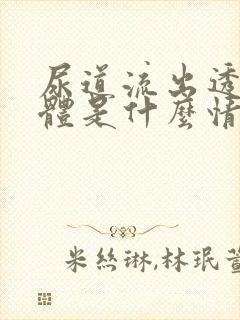 尿道流出透
體是什麼情
米絲琳,林珉萱